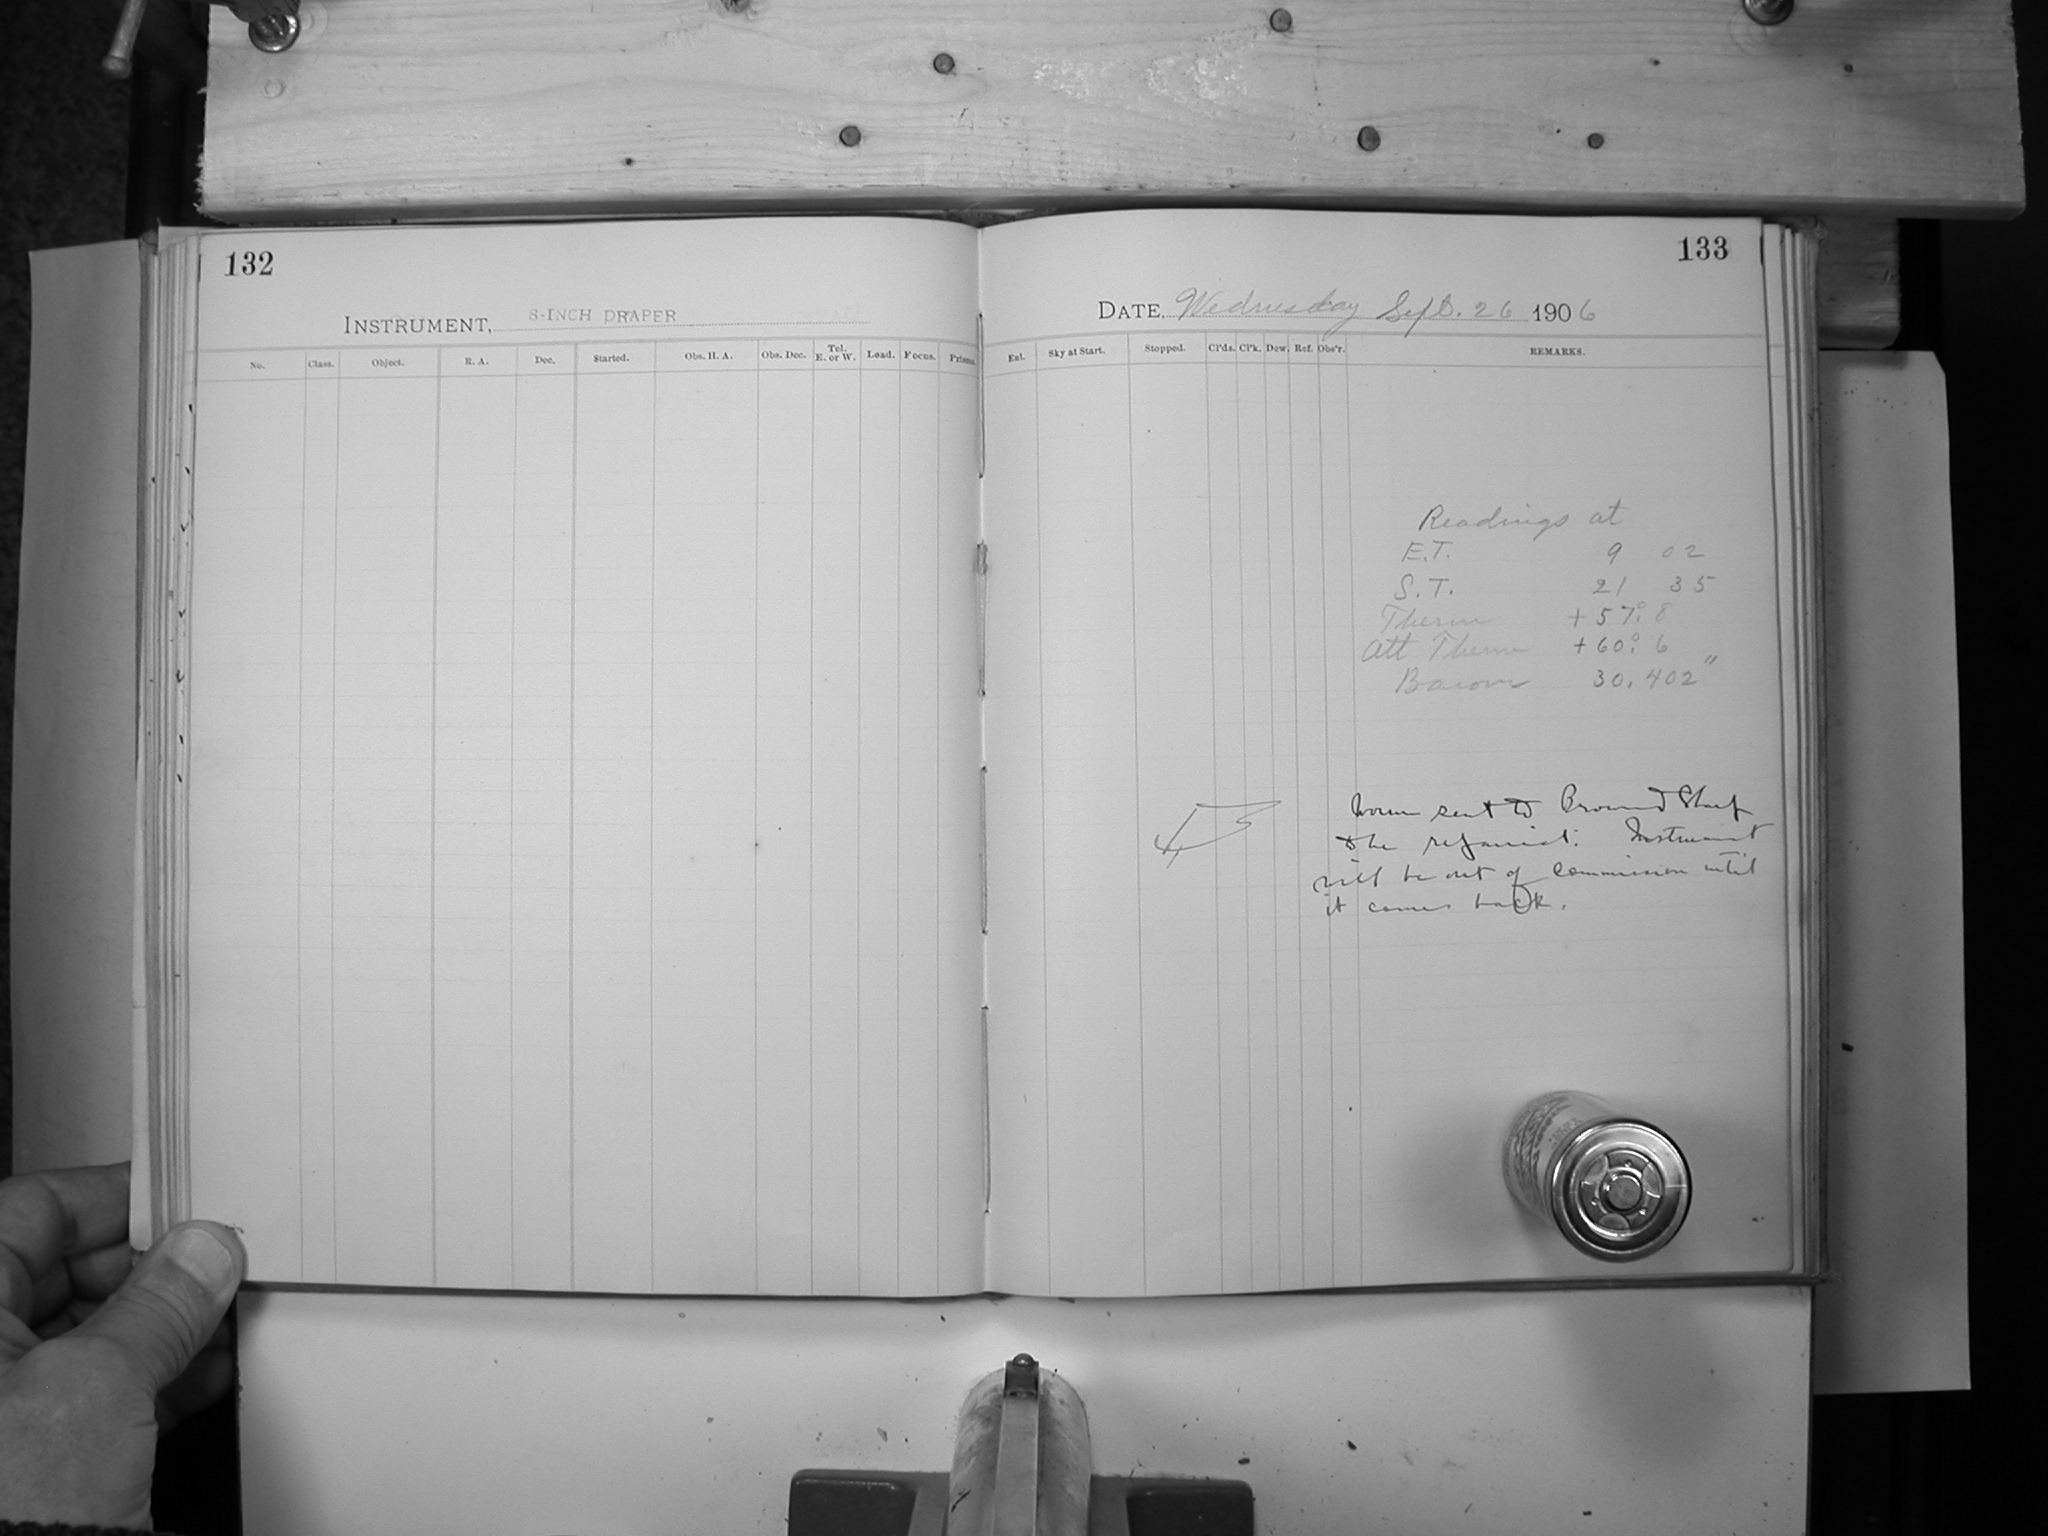 132
INSTRUMENT, 8-INCH DRAPER
No. Class. Object. R. A. Dec. Started. Obs. H. A. Obs. Dec. Tel. E. or W. Load. Focus. Prisms.
133
DATE, Wednesday Sept. 26 1906
Ent. Sky at Start. Stopped. Cl'ds. Cl'k. Dew. Ref. Obs'r. REMARKS.
Readings at
E.T. 9 02
S.T. 21 35
Therm +57°.8
Att Therm +60°.6
Barom 30.402"
Worm sent to
to be repaired. Instrument
will be out of commission until
it comes back.